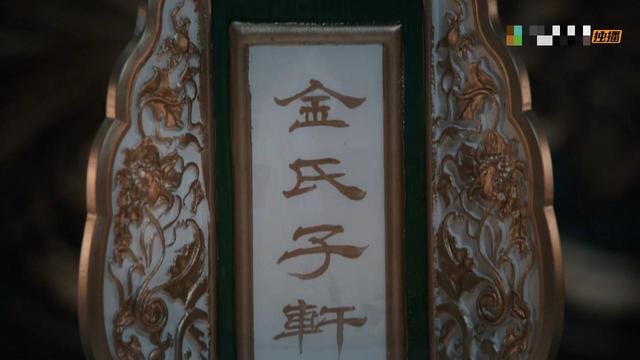 金氏子軒
独播